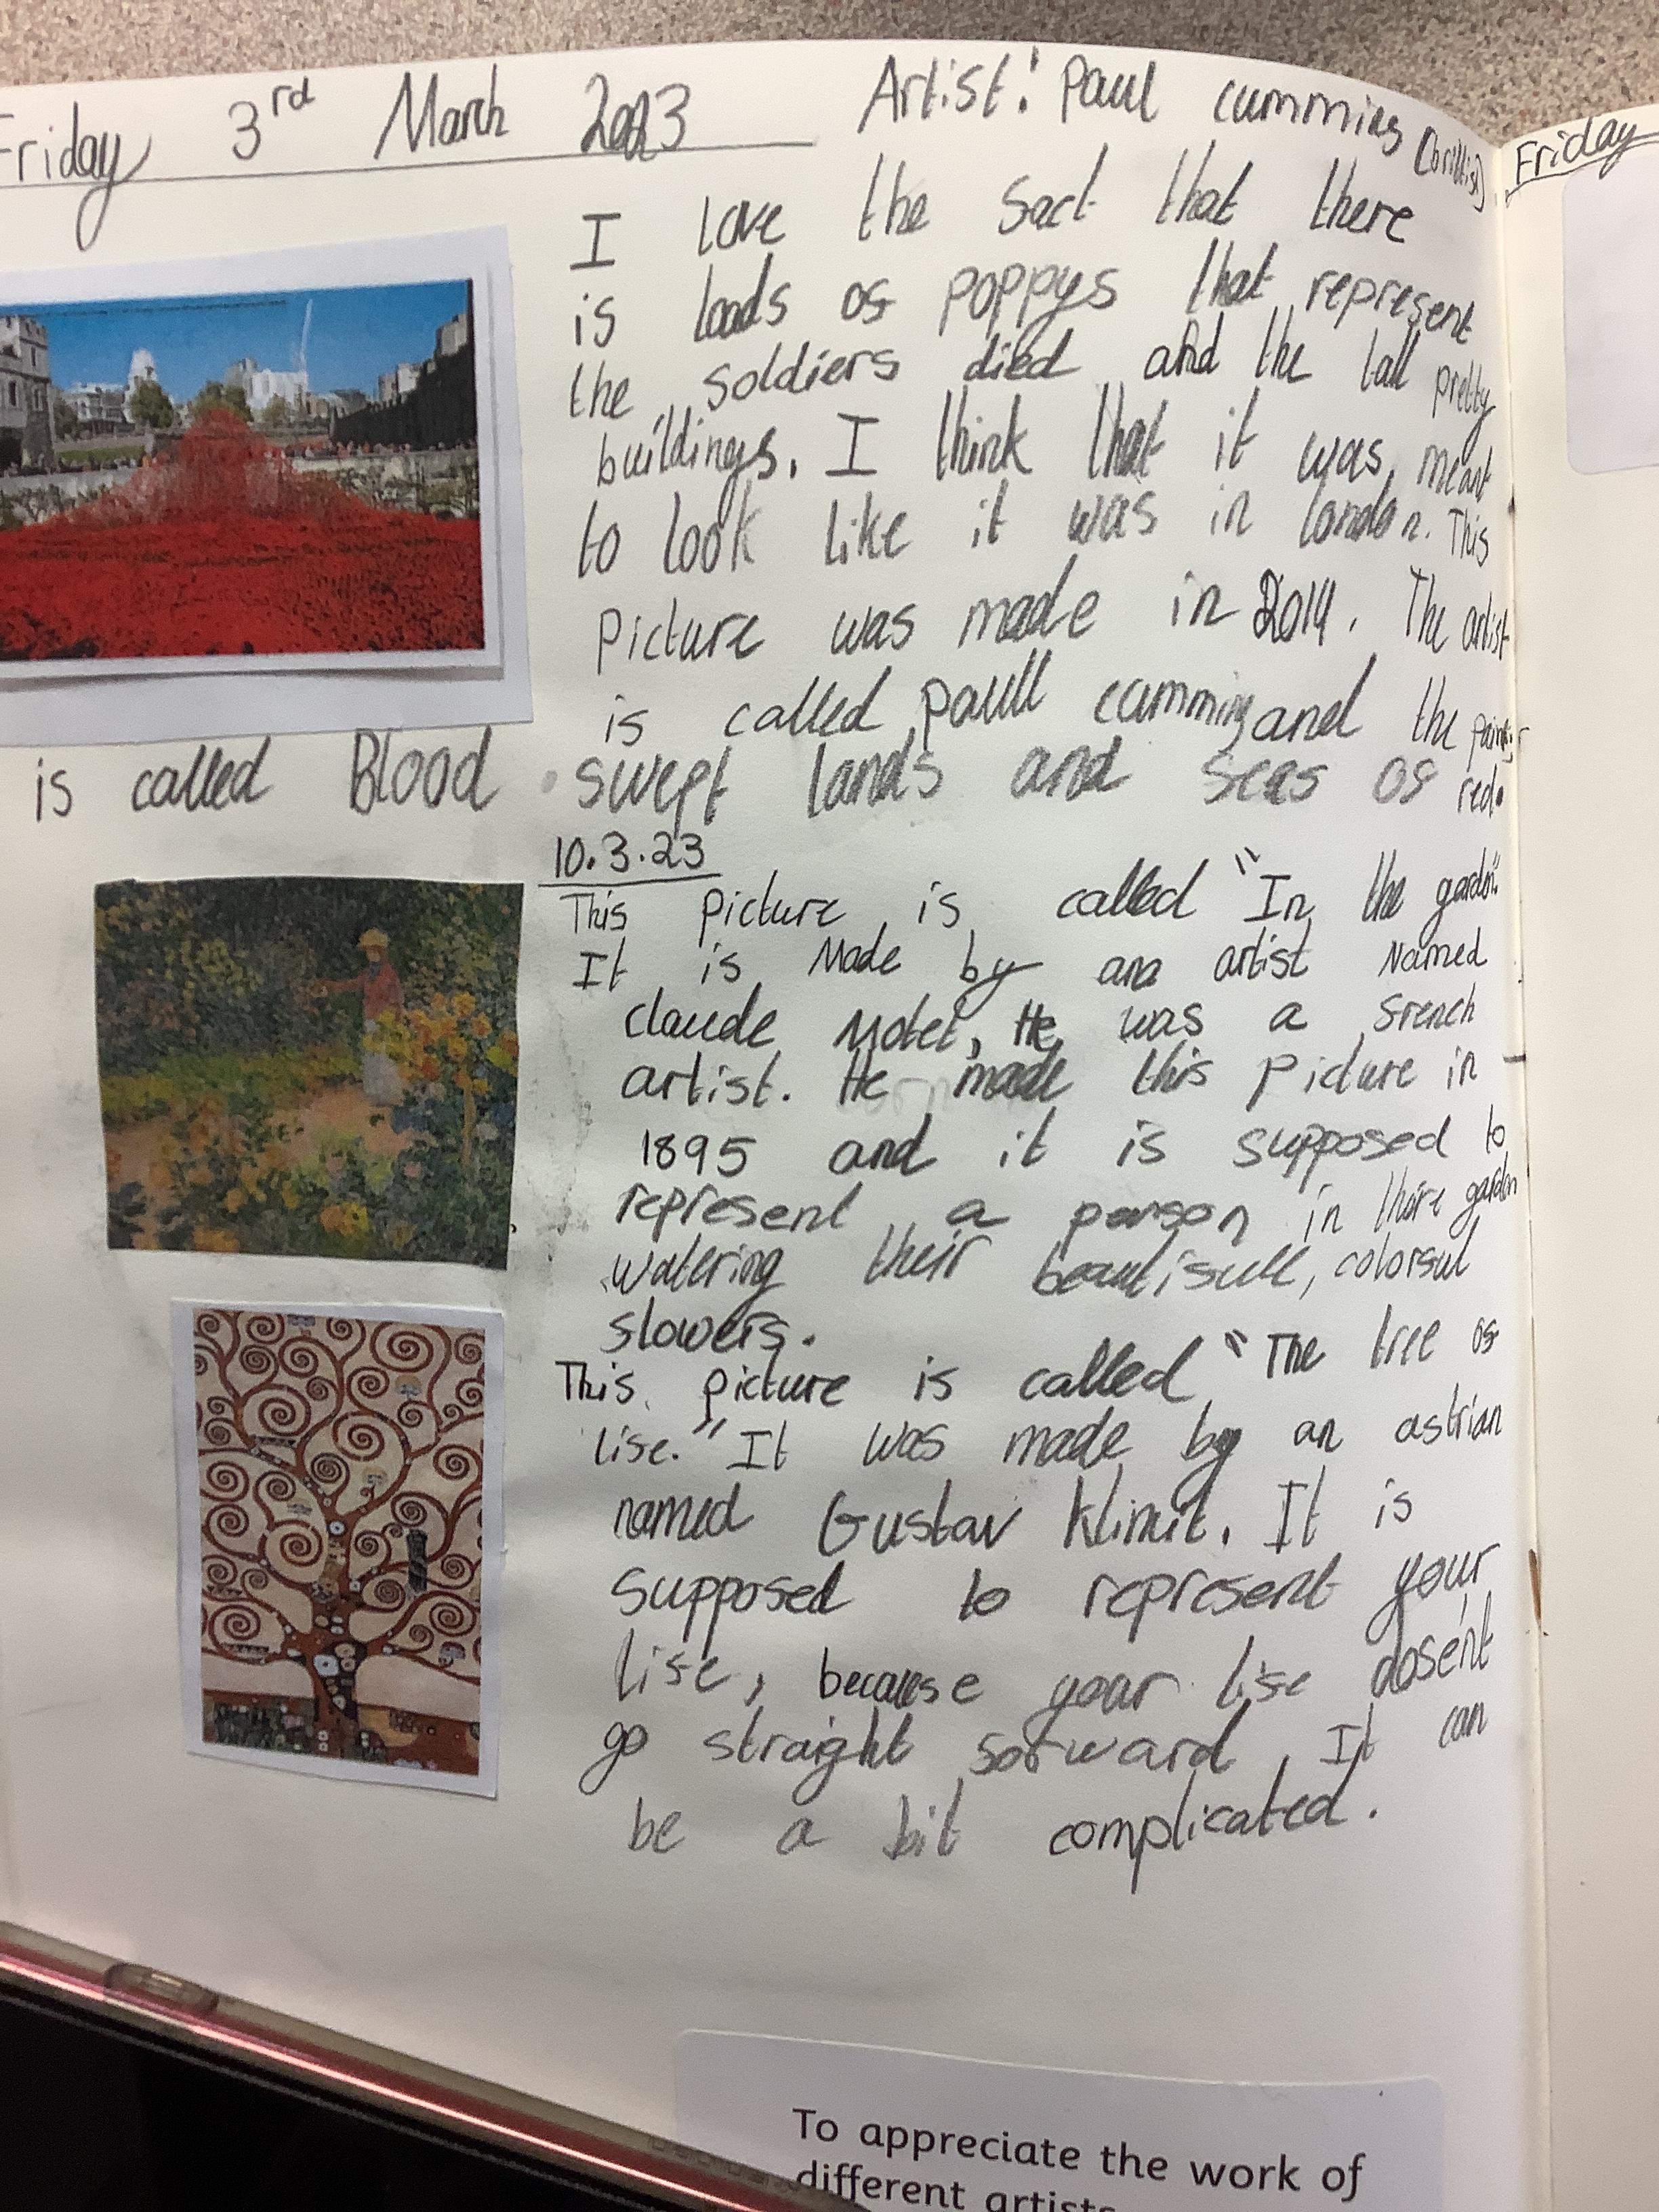 Friday 3rd March 2023 Artist: Paul cummins (brittish)
Friday
I love the fact that there
is loads of poppys that represent
the soldiers died and the tall pretty
buildings. I think that it was meant
to look like it was in london. This
picture was made in 2014. The artist
is called paull cummins and the
is called Blood swept lands and seas of red.
10.3.23
This picture is called "In the garden".
It is Made by ana artist Named
claude Motet, He was a french
artist. He made this picture in
1895 and it is supposed to
represent a person in their garden
watering their beautifull, colorful
flowers.
This picture is called "The tree of
life." It was made by an astrian
named Gustav Klimit. It is
supposed to represent your
life, because your life dosen't
go straight forward, It can
be a bit complicated.
To appreciate the work of
different artists